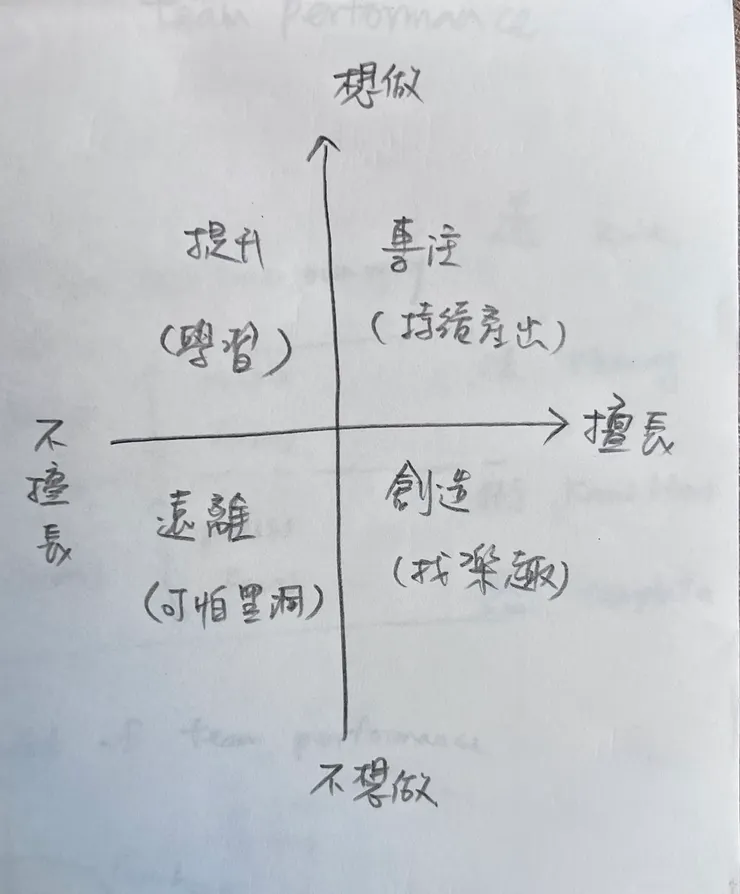 team performance
想做
提升
專注
(學習)
(持續產出)
不擅長
擅長
遠離
創造
(可怕黑洞)
(找樂趣)
of team performance
不想做